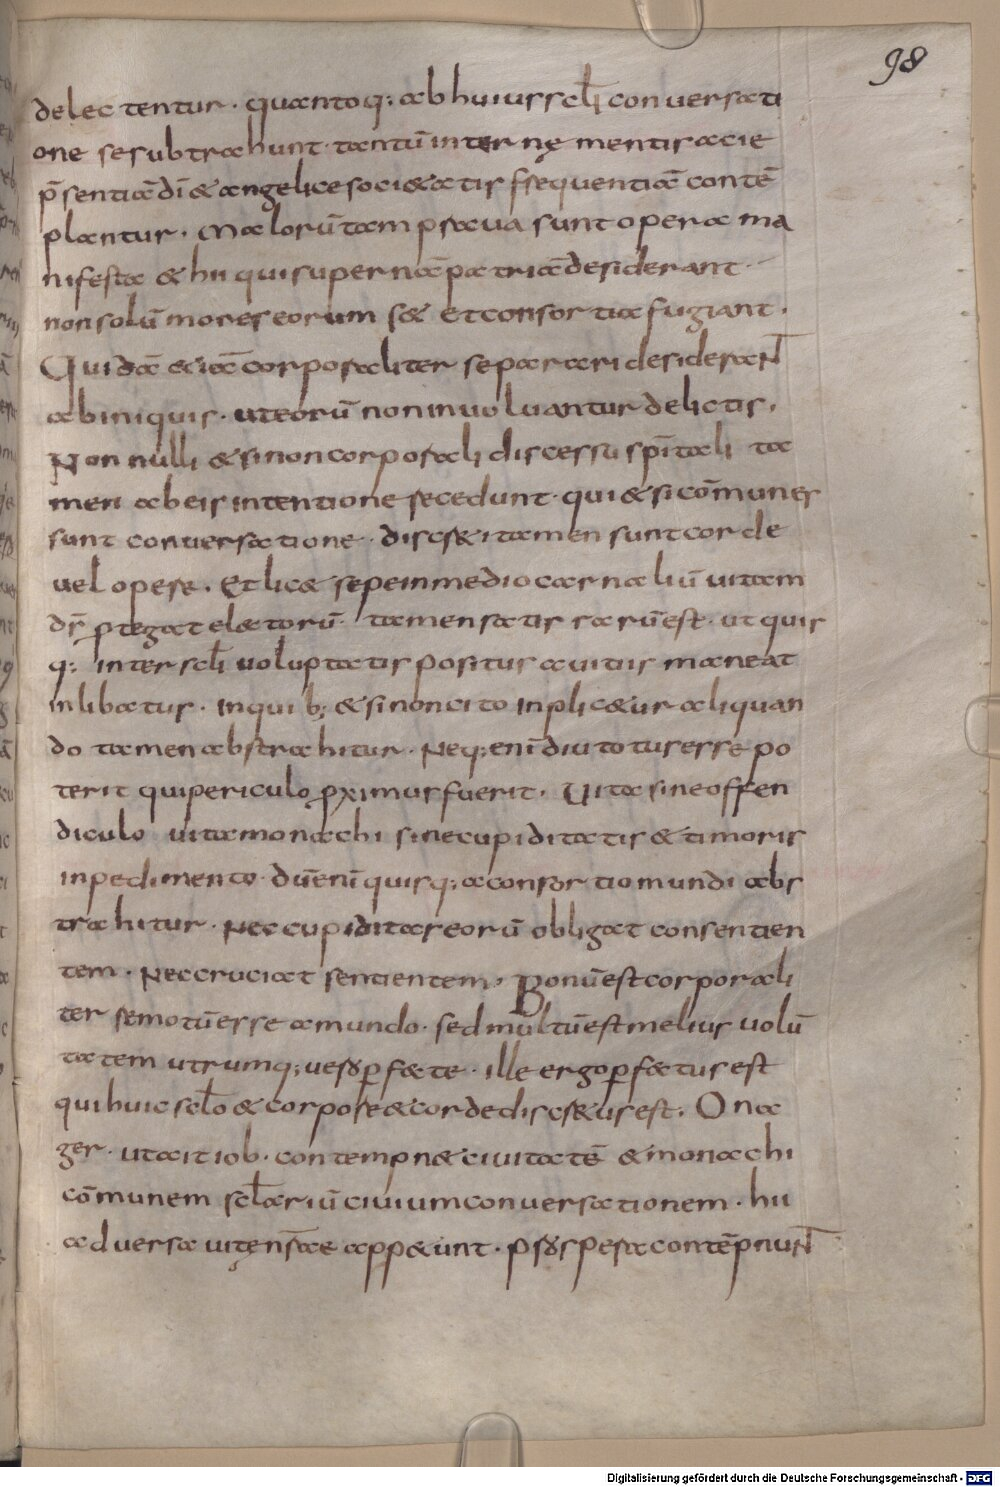 98
delectentur. quantoq; ab huius scl̄i conuersati
one se subtrahunt. tantū internę mentis acie
p̄sentiā dī & angelice societatis fsequentiā contē
plantur. Malorū tam praua sunt opera ma
nifesta & hii qui supernā patriā desiderant
non solū mores eorum s& et consortia fugiant.
Quidā &iā corporaliter separari desiderant
ab iniquis. ut eorū non inuoluantur delictis.
Non nulli & si non corporali discessu sp̄itali ta
men ab eis intentione secedunt. qui & si cōmunes
sunt conuersatione. discr&i tamen sunt corde
uel opere. Et lic& sepe in medio carnaliū uitam
dr̄ ptegat elatorū. tamen satis rarū est. ut quis
q; inter scl̄i uoluptatis positus a uitiis maneat
inlibatur. In quib; & si non cito inplic&ur aliquan
do tamen abstrahitur. Neq; enī diu totus esse po
terit qui periculo p̱ximus fuerit. Uita sine offen
diculo uita monachi sine cupiditatis & timoris
inpedimento. dū enī quisq; a consortio mundi abs
trahitur. Nec cupiditas eorū obligat consentien
tem. Nec cruciat sentientem. Bonū est corporali
ter remotū esse a mundo. sed multū est melius uolū
tatem utrumq; uero p̱f&te. ille ergo p̱f&tus est
qui huic scl̄o & corpore & corde discr&us est. Ona
ger. ut ait iob. contempn& ciuitatē & monachi
cōmunem scl̄ariū ciuium conuersationem. hii
aduersa uitę nr̄ae app&unt. prospera contēpnunt
Digitalisierung gefördert durch die Deutsche Forschungsgemeinschaft - DFG